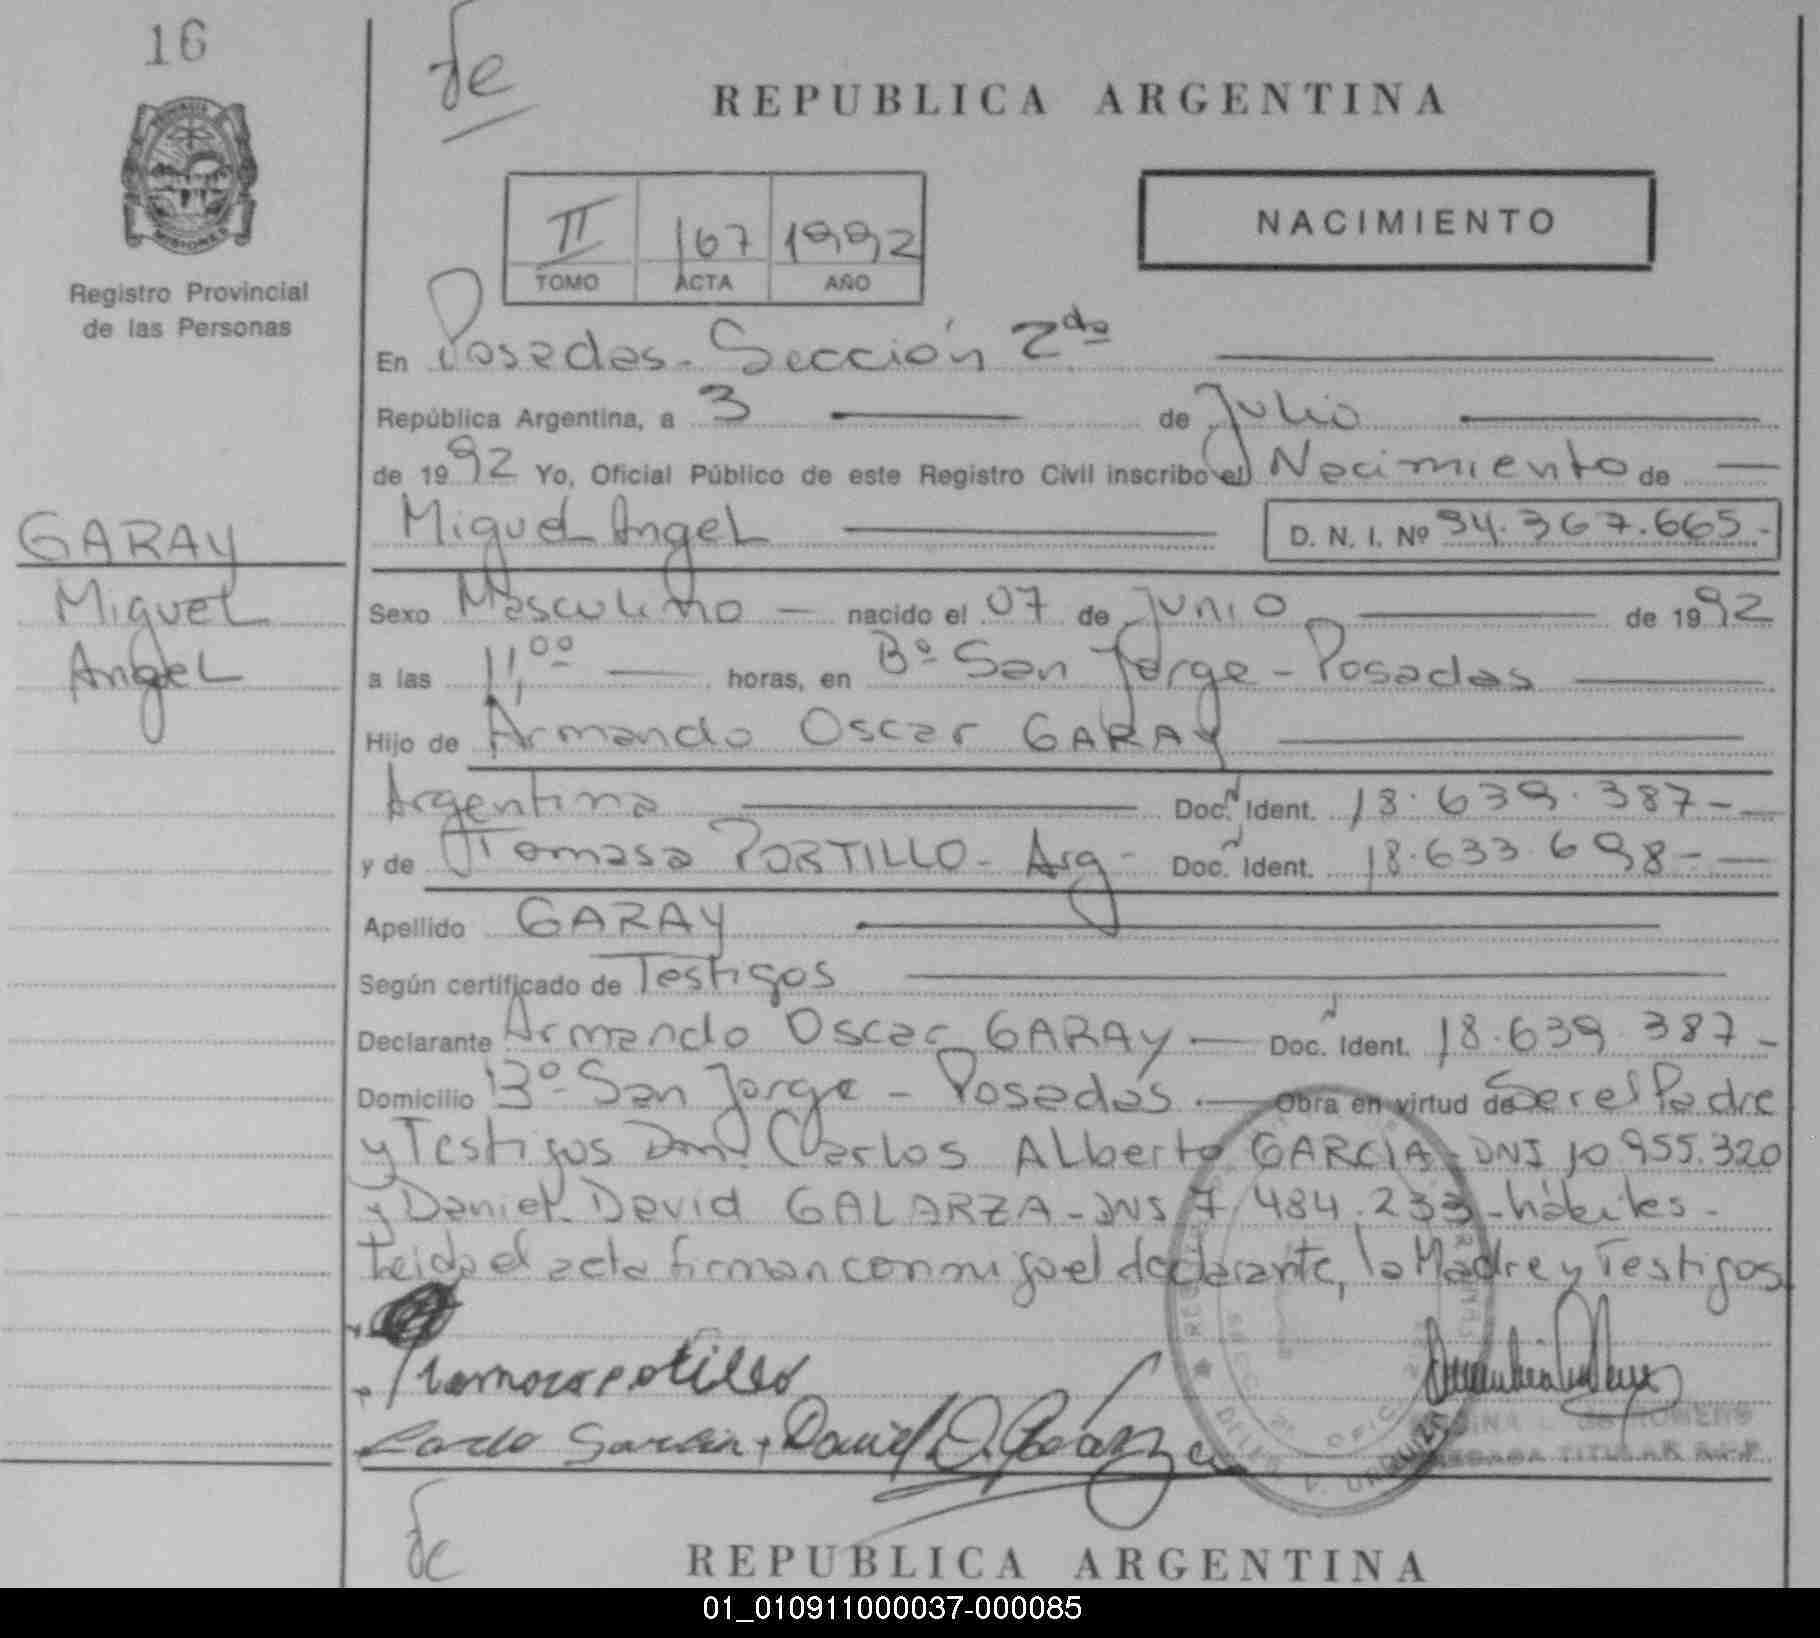 16
de
REPUBLICA ARGENTINA
MISIONES
Registro Provincial
de las Personas
II 167 1992
TOMO ACTA AÑO
NACIMIENTO
En Posadas - Sección 2da
República Argentina, a 3 de Julio
de 1992 Yo, Oficial Público de este Registro Civil inscribo el Nacimiento de
Miguel Angel D. N. I. Nº 94.367.665-
GARAY
Miguel
Angel
Sexo Masculino - nacido el 07 de Junio de 1992
a las 11,00 horas, en Bº San Jorge - Posadas
Hijo de Armando Oscar GARAY
Argentina Doc. Ident. 18.639.387-
y de Tomasa PORTILLO - Arg - Doc. Ident. 18.633.698-
Apellido GARAY
Según certificado de Testigos
Declarante Armando Oscar GARAY - Doc. Ident. 18.639.387-
Domicilio Bº San Jorge - Posadas - Obra en virtud de Ser el Padre
y Testigos Dn. Carlos Alberto GARCIA - DNI 10 955.320
y Daniel David GALARZA - DNI 7.484.233 - hábiles -
Leida el acta firman conmigo el declarante, la Madre y Testigos.
TITULAR
de
REPUBLICA ARGENTINA
01_010911000037-000085